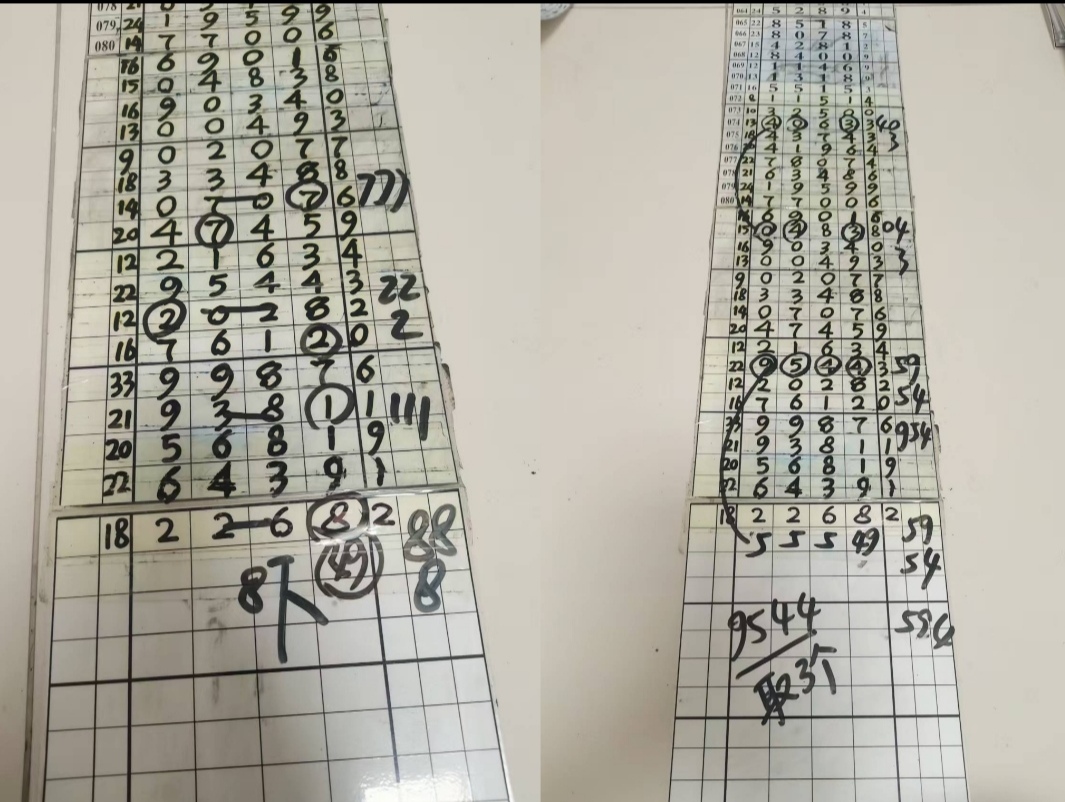 079 24 1 9 5 9 9
080 14 7 7 0 0 6
16 6 9 0 1 6
15 0 4 8 3 8
16 9 0 3 4 0
13 0 0 4 9 3
9 0 2 0 7 7
18 3 3 4 8 8
14 0 7 0 7 6 777
20 4 7 4 5 9
12 2 1 6 3 4
22 9 5 4 4 3 22
12 2 0 2 8 2 2
16 7 6 1 2 0
33 9 9 8 7 6
21 9 3 8 1 1 111
20 5 6 8 1 9
22 6 4 3 9 1
18 2 2 6 8 2 88
49
8 8
065 22 8 5 1 8
066 23 8 0 7 8
067 15 4 2 8 1
068 12 8 4 0 0
069 12 1 1 4 6
071 16 5 5 1 5
072 8 1 1 5 1 4
073 10 3 2 5 0 0
074 13 4 0 6 3 3 40
075 18 4 3 7 4 3 3
076 20 4 1 9 6 4
077 22 7 8 0 7 4
078 21 6 3 4 8 6
079 24 1 9 5 9 9
080 14 7 7 0 0 6
16 6 9 0 1 6
15 0 4 8 3 8 04
16 9 0 3 4 0 3
13 0 0 4 9 3
9 0 2 0 7 7
18 3 3 4 8 8
14 0 7 0 7 6
20 4 7 4 5 9
12 2 1 6 3 4
22 9 5 4 4 3 59
12 2 0 2 8 2 54
16 7 6 1 2 0
33 9 9 8 7 6 954
21 9 3 8 1 1
20 5 6 8 1 9
22 6 4 3 9 1
18 2 2 6 8 2 59
5 5 5 49
54
9544 594
取3个